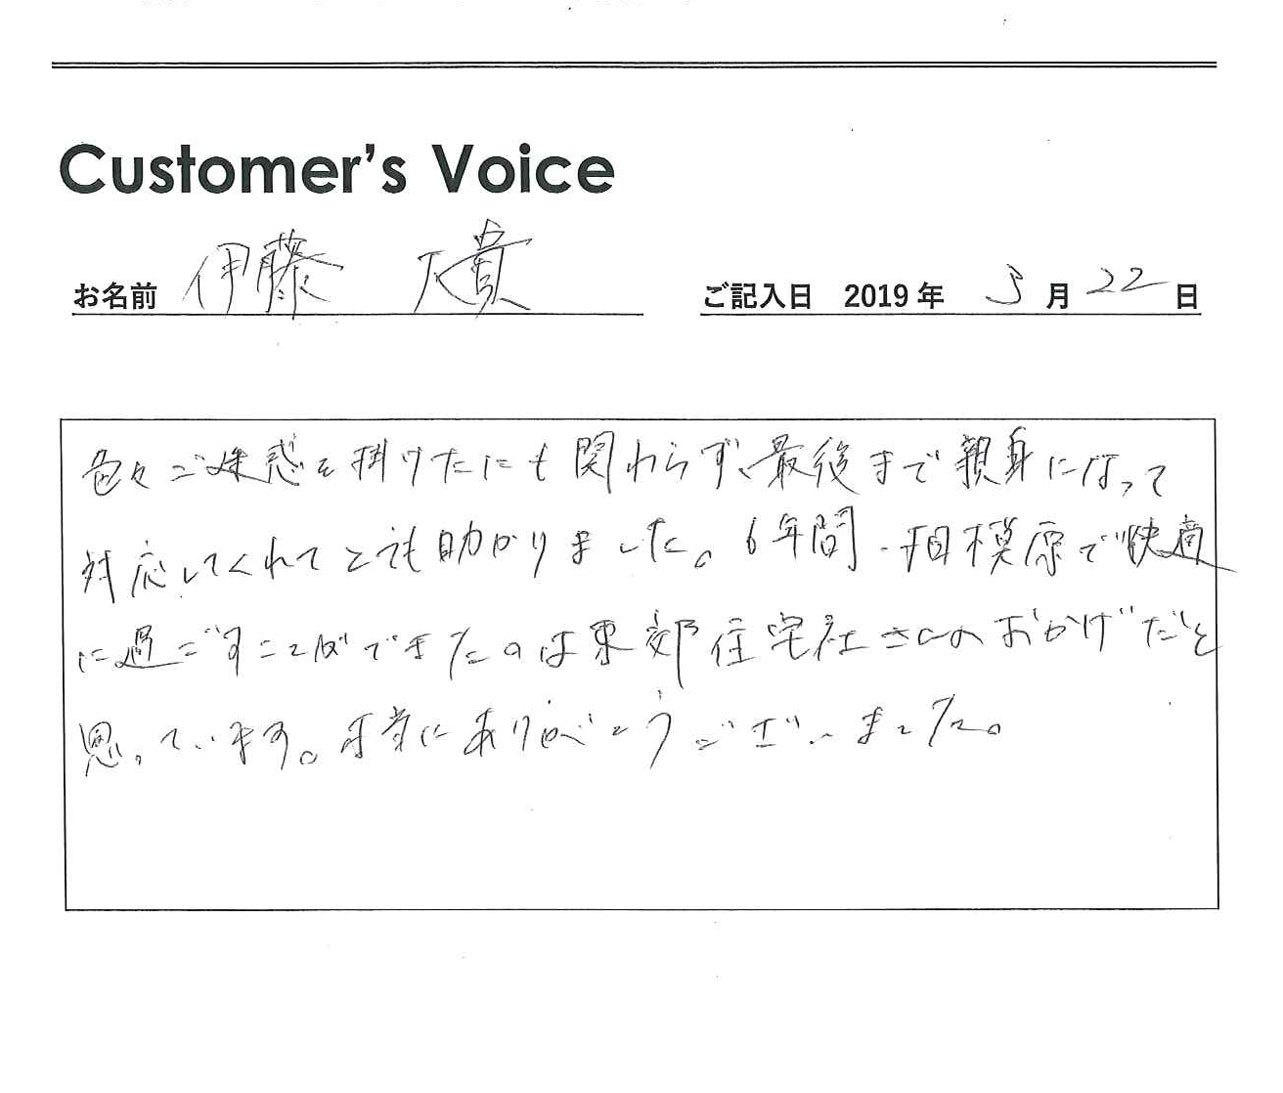 Customer's Voice
お名前 伊藤 大貴 ご記入日 2019年 3月22日
色々ご迷惑を掛けたにも関わらず、最後まで親身になって
対応してくれてとても助かりました。6年間、相模原で快適
に過ごすことができたのは東郊住宅社さんのおかげだと
思っています。本当にありがとうございました。